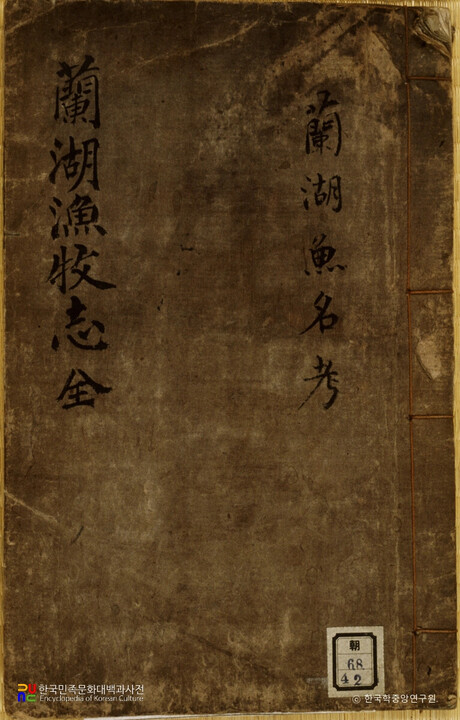 蘭湖漁牧志 全
蘭湖魚名考
朝
68
42
한국민족문화대백과사전
Encyclopedia of Korean Culture
© 한국학중앙연구원